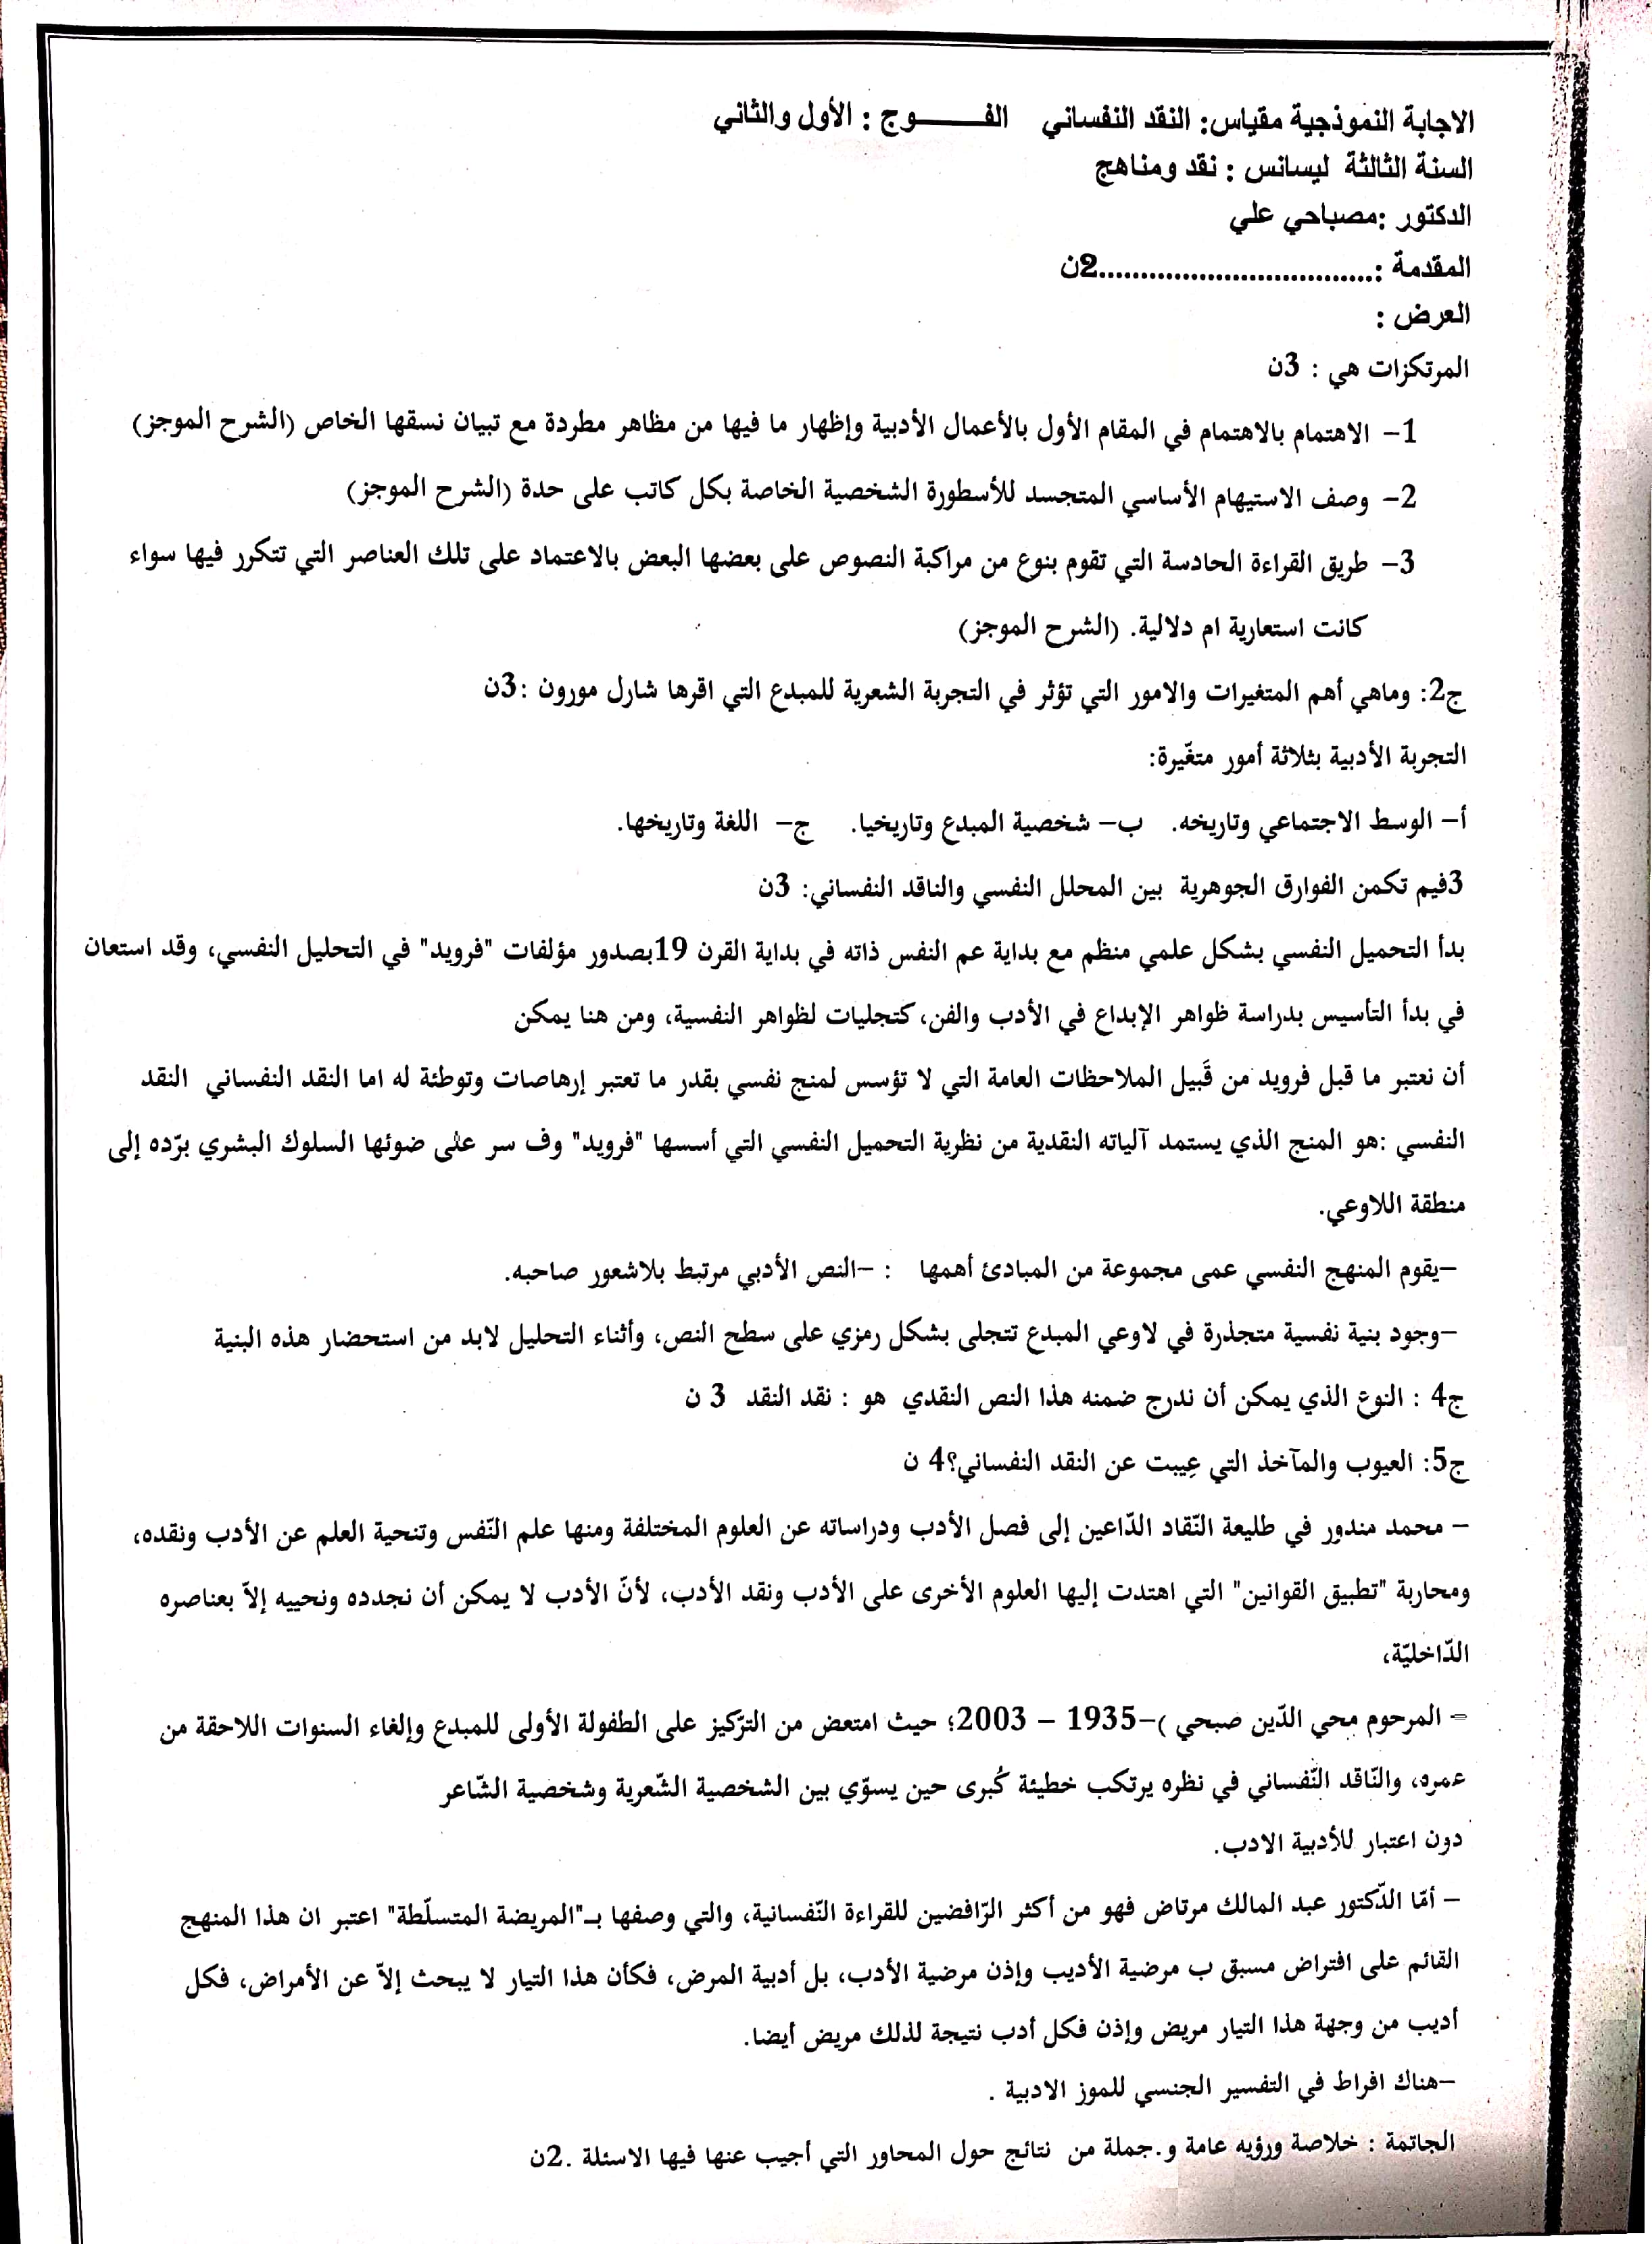 الاجابة النموذجية مقياس: النقد النفساني الفـــــــوج : الأول والثاني
السنة الثالثة ليسانس : نقد ومناهج
الدكتور :مصباحي علي
المقدمة :.................................2ن
العرض :
المرتكزات هي : 3ن
1- الاهتمام بالاهتمام في المقام الأول بالأعمال الأدبية وإظهار ما فيها من مظاهر مطردة مع تبيان نسقها الخاص (الشرح الموجز)
2- وصف الاستيهام الأساسي المتجسد للأسطورة الشخصية الخاصة بكل كاتب على حدة (الشرح الموجز)
3- طريق القراءة الحادسة التي تقوم بنوع من مراكبة النصوص على بعضها البعض بالاعتماد على تلك العناصر التي تتكرر فيها سواء
كانت استعارية ام دلالية. (الشرح الموجز)
ج2: وماهي أهم المتغيرات والامور التي تؤثر في التجربة الشعرية للمبدع التي اقرها شارل مورون :3ن
التجربة الأدبية بثلاثة أمور متغّيرة:
أ- الوسط الاجتماعي وتاريخه. ب- شخصية المبدع وتاريخيا. ج- اللغة وتاريخها.
3فيم تكمن الفوارق الجوهرية بين المحلل النفسي والناقد النفساني: 3ن
بدأ التحميل النفسي بشكل علمي منظم مع بداية عم النفس ذاته في بداية القرن 19بصدور مؤلفات "فرويد" في التحليل النفسي، وقد استعان
في بدأ التأسيس بدراسة ظواهر الإبداع في الأدب والفن، كتجليات لظواهر النفسية، ومن هنا يمكن
أن نعتبر ما قبل فرويد من قَبيل الملاحظات العامة التي لا تؤسس لمنج نفسي بقدر ما تعتبر إرهاصات وتوطئة له اما النقد النفساني النقد
النفسي :هو المنج الذي يستمد آلياته النقدية من نظرية التحميل النفسي التي أسسها "فرويد" وف سر على ضوئها السلوك البشري برّده إلى
منطقة اللاوعي.
-يقوم المنهج النفسي عمى مجموعة من المبادئ أهمها : -النص الأدبي مرتبط بلاشعور صاحبه.
-وجود بنية نفسية متجذرة في لاوعي المبدع تتجلى بشكل رمزي على سطح النص، وأثناء التحليل لابد من استحضار هذه البنية
ج4 : النوع الذي يمكن أن ندرج ضمنه هذا النص النقدي هو : نقد النقد 3 ن
ج5: العيوب والمآخذ التي عِيبت عن النقد النفساني؟4 ن
- محمد مندور في طليعة النّقاد الدّاعين إلى فصل الأدب ودراساته عن العلوم المختلفة ومنها علم النّفس وتنحية العلم عن الأدب ونقده،
ومحاربة "تطبيق القوانين" التي اهتدت إليها العلوم الأخرى على الأدب ونقد الأدب، لأنّ الأدب لا يمكن أن نجدده ونحييه إلاّ بعناصره
الدّاخليّة،
- المرحوم محي الدّين صبحي )-1935 - 2003؛ حيث امتعض من التّركيز على الطفولة الأولى للمبدع وإلغاء السنوات اللاحقة من
عمره، والنّاقد النّفساني في نظره يرتكب خطيئة كُبرى حين يسوّي بين الشخصية الشّعرية وشخصية الشّاعر
دون اعتبار للأدبية الادب.
- أمّا الدّكتور عبد المالك مرتاض فهو من أكثر الرّافضين للقراءة النّفسانية، والتي وصفها بـ"المريضة المتسلّطة" اعتبر ان هذا المنهج
القائم على افتراض مسبق ب مرضية الأديب وإذن مرضية الأدب، بل أدبية المرض، فكأن هذا التيار لا يبحث إلاّ عن الأمراض، فكل
أديب من وجهة هذا التيار مريض وإذن فكل أدب نتيجة لذلك مريض أيضا.
-هناك افراط في التفسير الجنسي للموز الادبية .
الجاتمة : خلاصة ورؤيه عامة و.جملة من نتائج حول المحاور التي أجيب عنها فيها الاسئلة .2ن